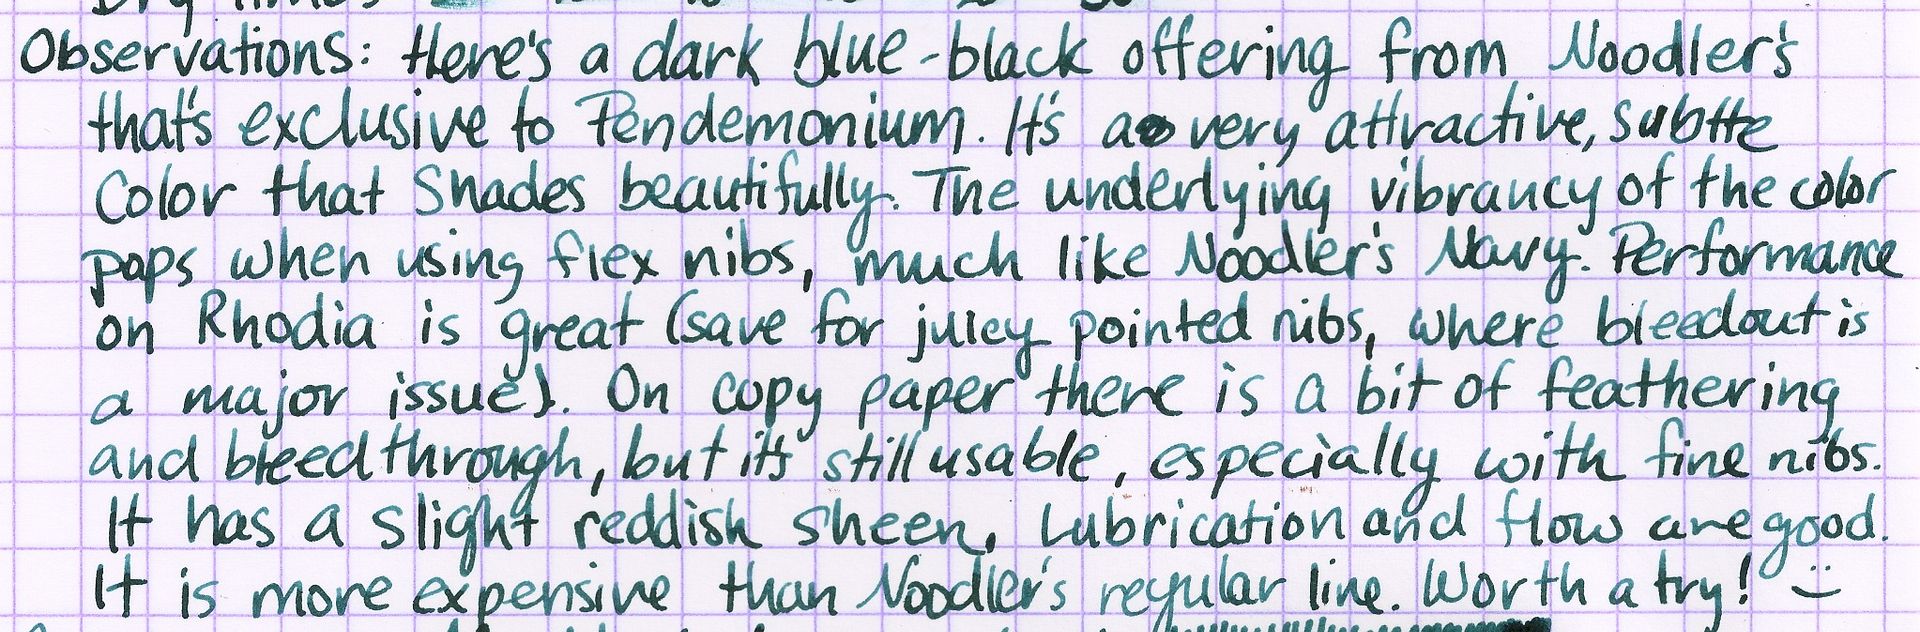 Dry times
Observations: Here's a dark blue-black offering from Noodler's
that's exclusive to Pendemonium. It's a very attractive, subtle
color that shades beautifully. The underlying vibrancy of the color
pops when using flex nibs, much like Noodler's Navy. Performance
on Rhodia is great (save for juicy pointed nibs, where bleedout is
a major issue). On copy paper there is a bit of feathering
and bleedthrough, but it's still usable, especially with fine nibs.
It has a slight reddish sheen, Lubrication and flow are good.
It is more expensive than Noodler's regular line. Worth a try! :)